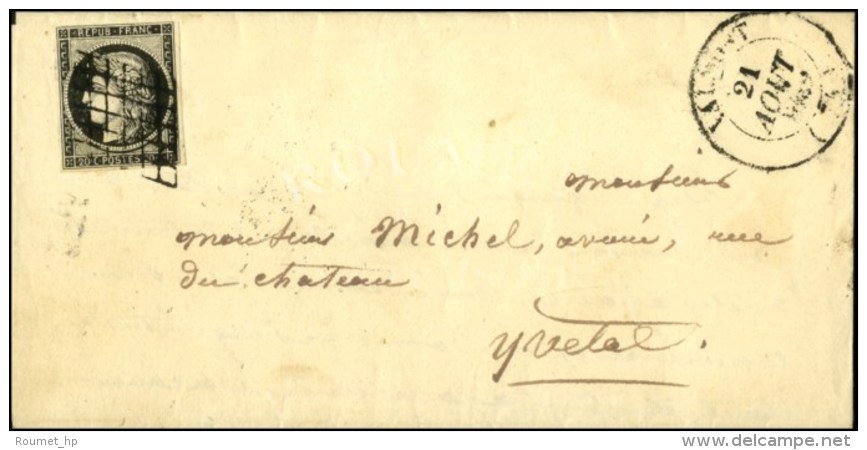 REPUB FRANC
20 C POSTES 20 C
VALMONT
21
AOUT
monsieur
monsieur Michel, avoué, rue
du chateau
yvetot.
Roumet_hp
www.delcampe.net